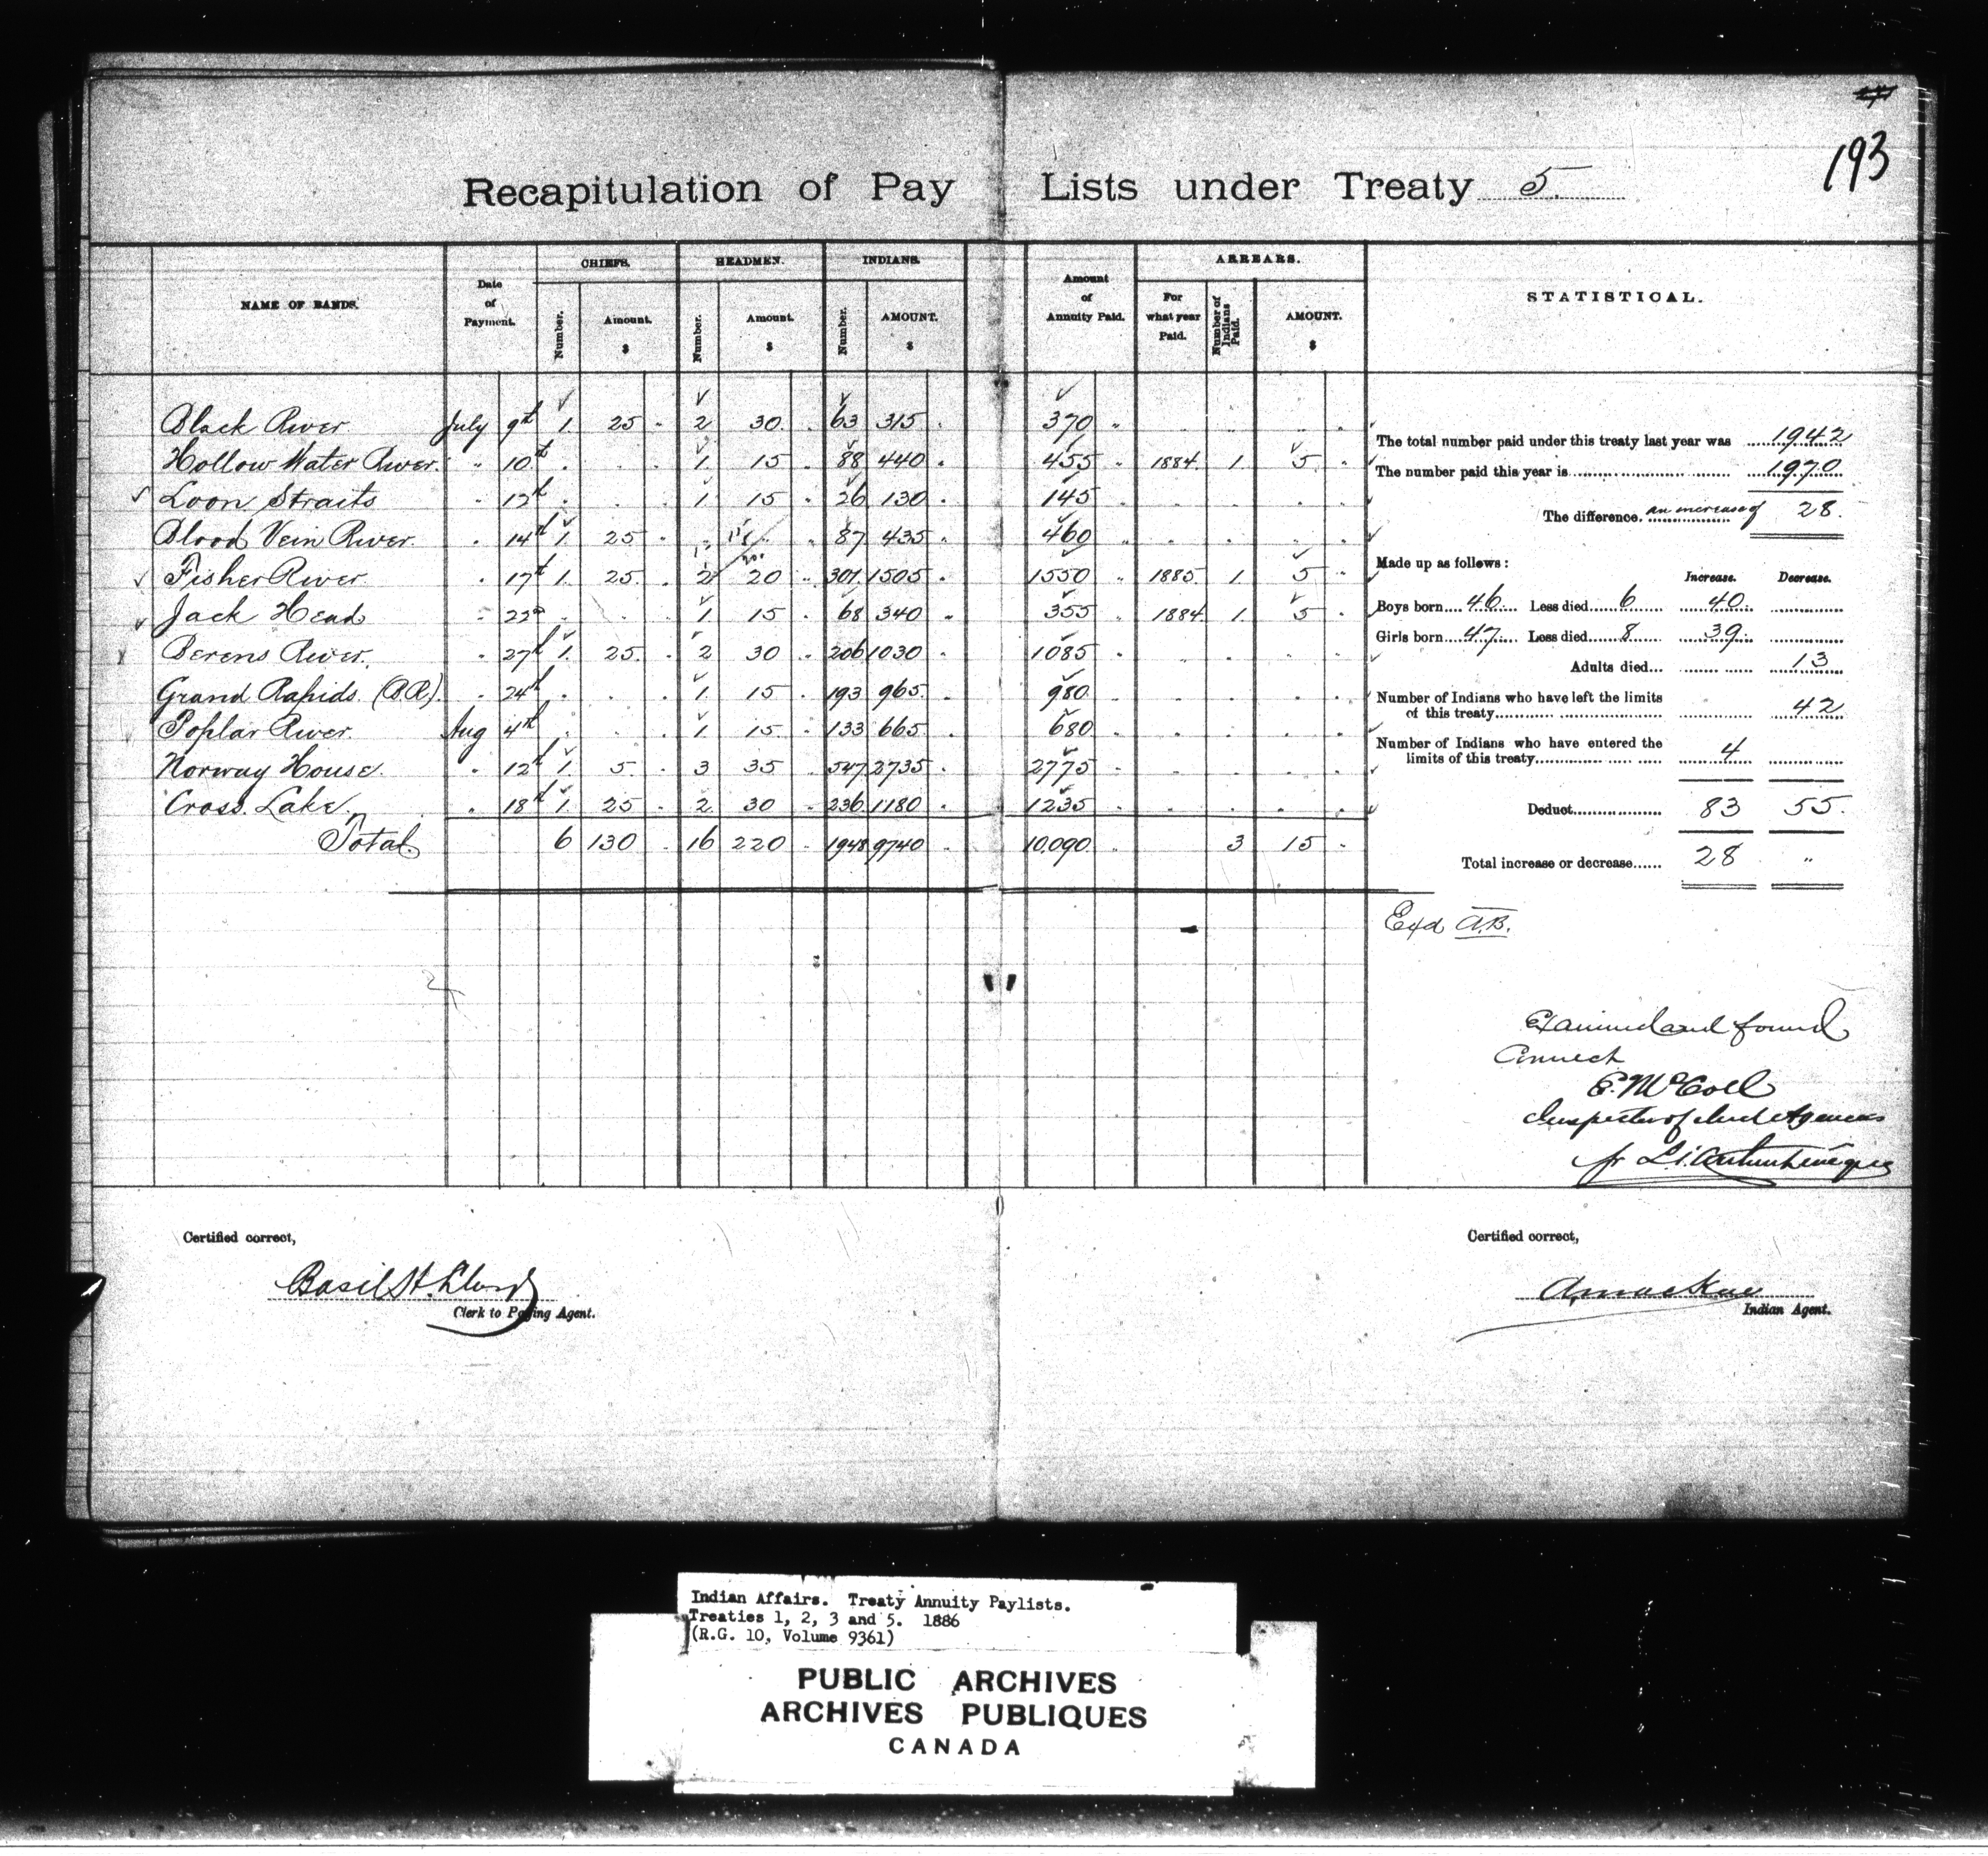 193
Recapitulation of Pay Lists under Treaty 5.
NAME OF BANDS. Date of Payment. CHIEFS. HEADMEN. INDIANS. Amount of Annuity Paid. ARREARS. STATISTICAL.
Number. Amount. $ Number. Amount. $ Number. AMOUNT. $ For what year Paid. Number of Indians Paid. AMOUNT. $
Black River July 9th 1. 25 " 2 30. " 63 315 " 370 " " " " "
Hollow Water River. " 10th . . . 1. 15 " 88 440 " 455 " 1884. 1. 5. "
Loon Straits " 12th . . . 1. 15 " 26 130 " 145 " " " " "
Blood Vein River. " 14th 1. 25. " " " " 87 435 " 460 " " " " "
Fisher River " 17th 1. 25. " 2 20 " 301. 1505 " 1550 " 1885. 1. 5 "
Jack Head " 22nd . . . 1 15 " 68 340 " 355 " 1884. 1. 5 "
Berens River. " 27th 1. 25. " 2 30 " 206 1030 " 1085 " " " " "
Grand Rapids. (B.R.). " 24th . . . 1. 15 " 193 965. " 980. " " " " "
Poplar River. Aug 4th . . . 1. 15. " 133 665. " 680 " " " " "
Norway House. " 12th 1. 5. " 3 35 " 547 2735 " 2775 " " " " "
Cross Lake. " 18th 1. 25 " 2 30 " 236 1180 " 1235 " " " " "
Total. 6 130 " 16 220 " 1948 9740 " 10.090. " 3 15 "
The total number paid under this treaty last year was 1942
The number paid this year is 1970
The difference. an increase of 28.
Made up as follows:
Increase. Decrease.
Boys born 46. Less died 6 40.
Girls born 47. Less died 8. 39.
Adults died... 13
Number of Indians who have left the limits
of this treaty 42
Number of Indians who have entered the
limits of this treaty 4
Deduct 83 55.
Total increase or decrease 28 "
Exd A.B.
Examined and found
Correct
E. McColl
Inspector of Ind Agencies
Certified correct,
Basil H.
Clerk to Paying Agent.
Certified correct,
Indian Agent.
Indian Affairs. Treaty Annuity Paylists.
Treaties 1, 2, 3 and 5. 1886
(R.G. 10, Volume 9361)
PUBLIC ARCHIVES
ARCHIVES PUBLIQUES
CANADA